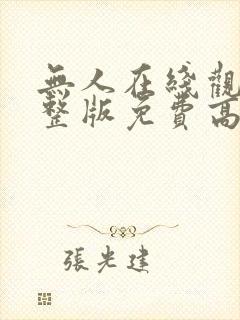 無人在綫觀
整版免費高
張光建